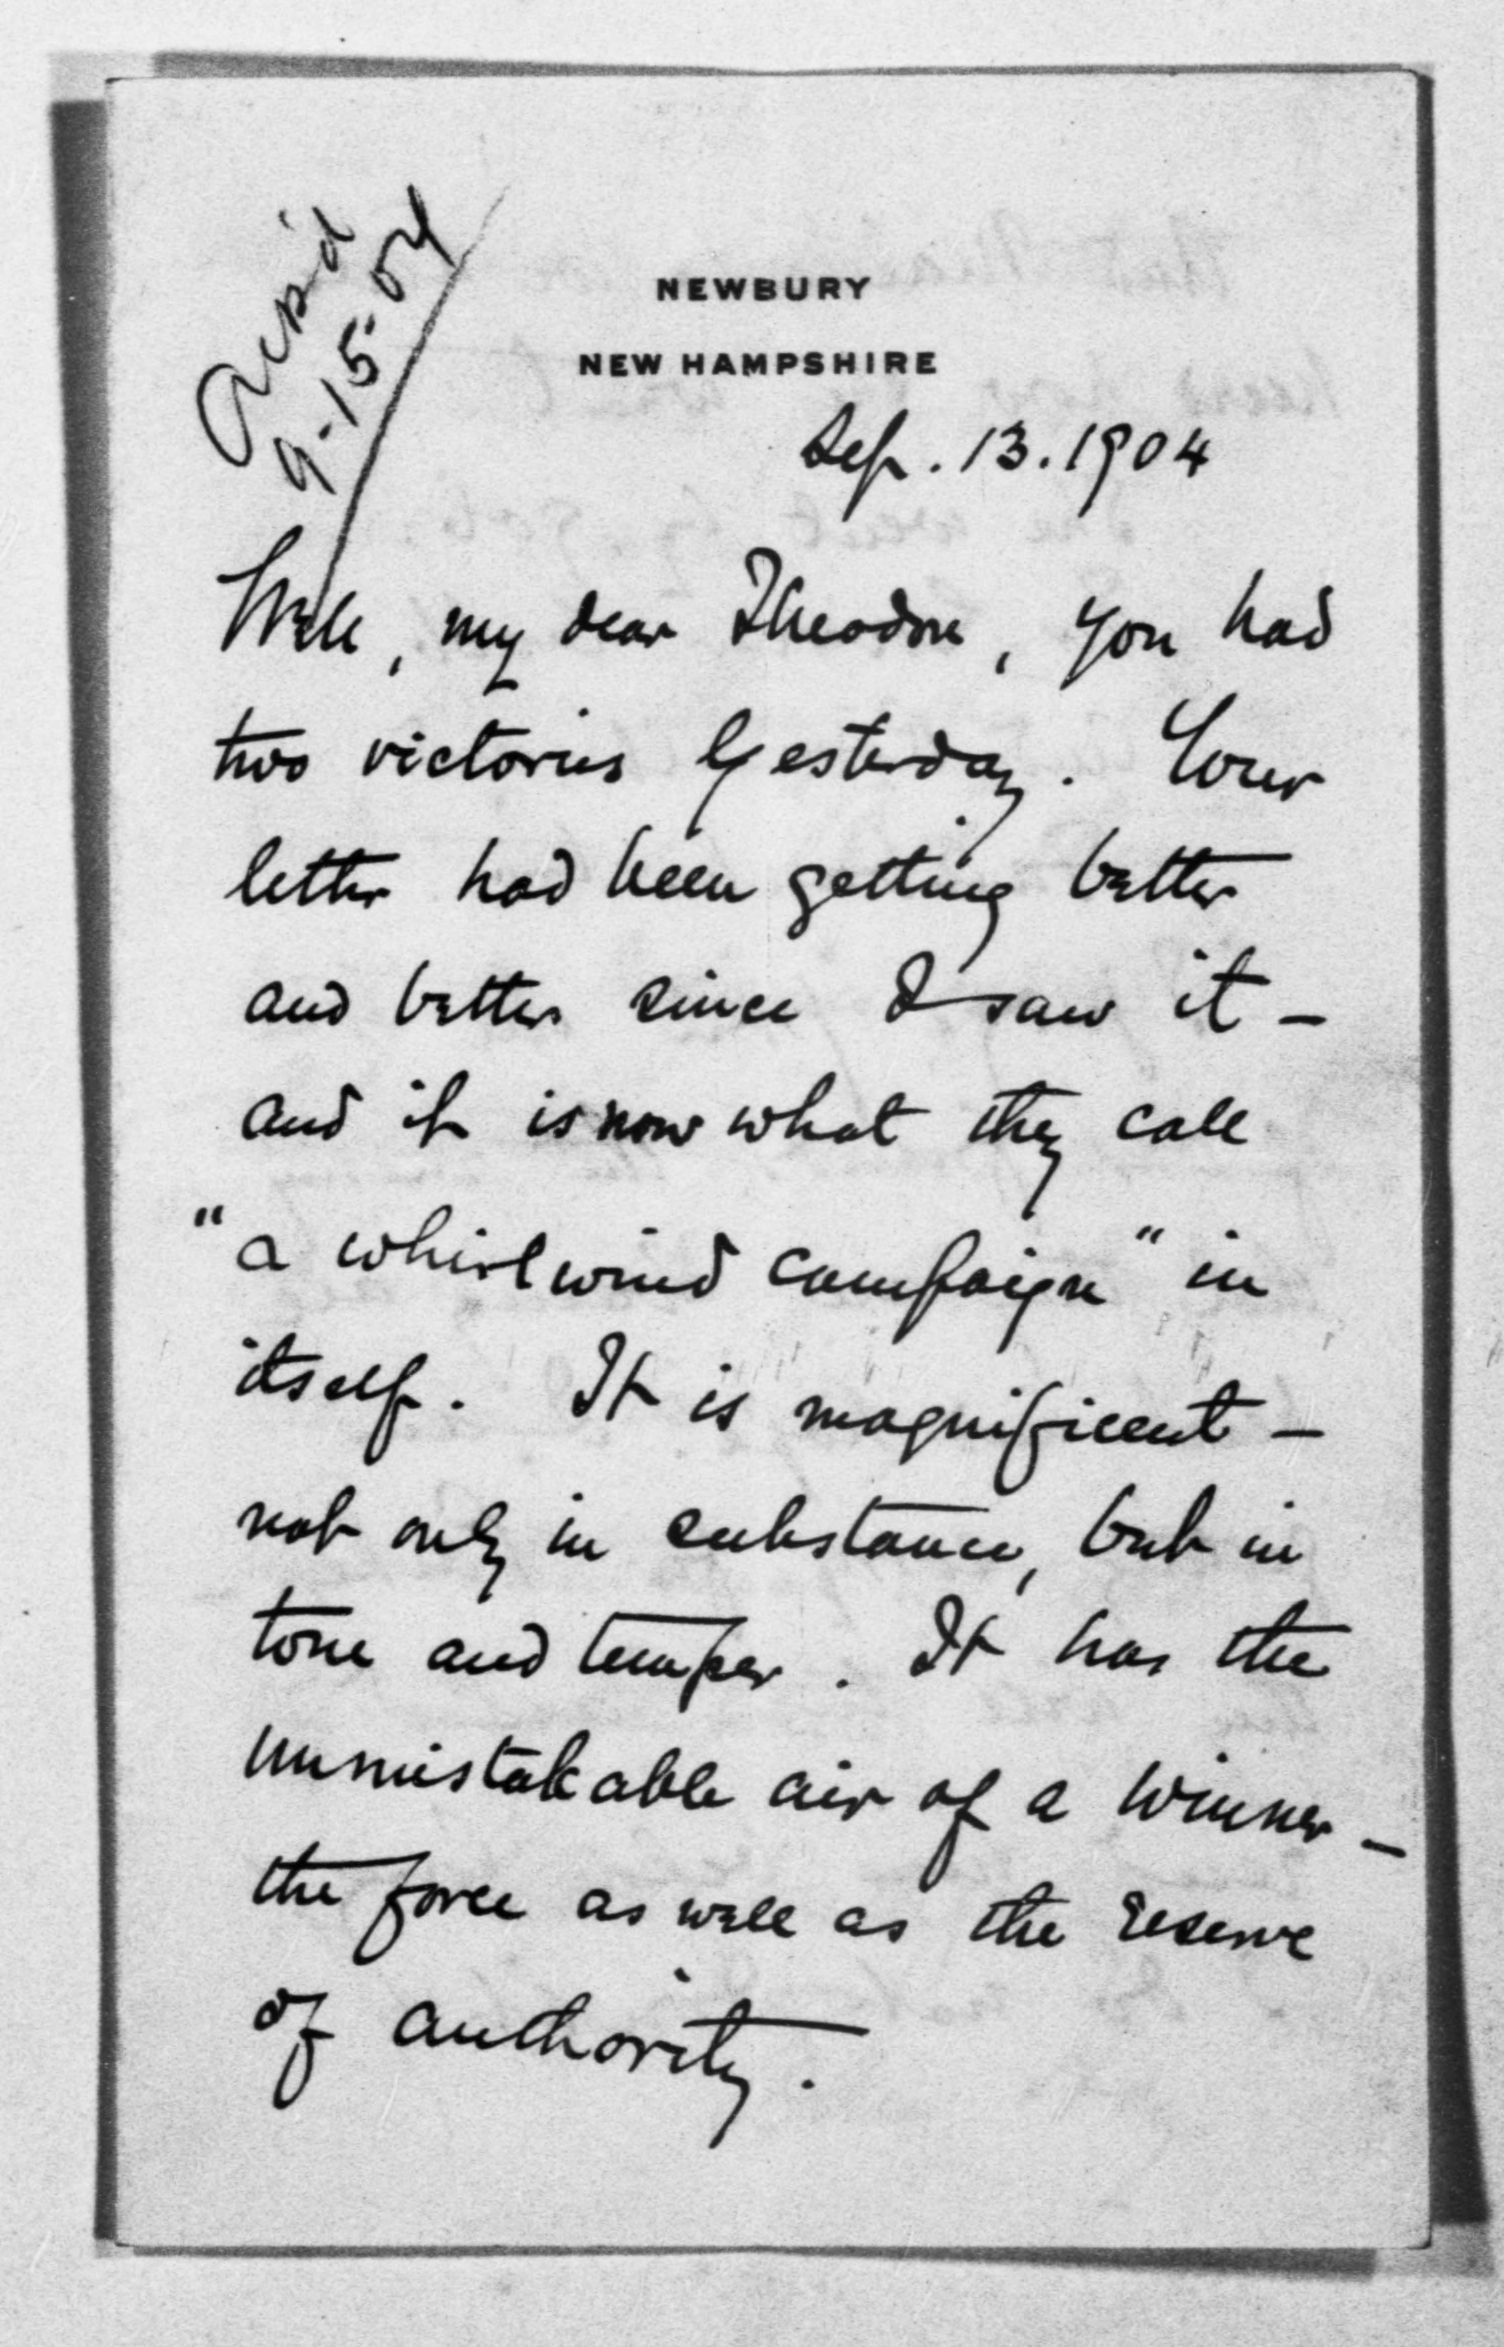 Ack'd
9-15-04
NEWBURY
NEW HAMPSHIRE
Sep. 13. 1904
Well, my dear Theodore, you had
two victories yesterday. Your
letter had been getting better
and better since I saw it –
and it is now what they call
"a whirlwind campaign" in
itself. It is magnificent –
not only in substance, but in
tone and temper. It has the
unmistakable air of a winner –
the force as well as the reserve
of authority.